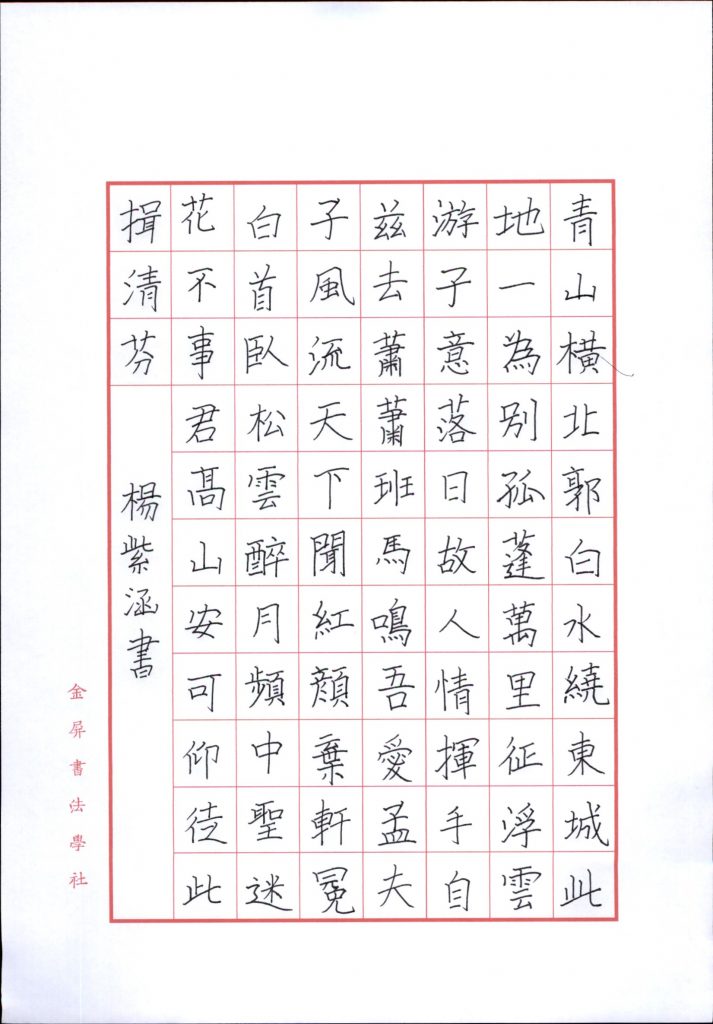 青山橫北郭白水繞東城此
地一為別孤蓬萬里征浮雲
游子意落日故人情揮手自
茲去蕭蕭班馬鳴吾愛孟夫
子風流天下聞紅顏棄軒冕
白首臥松雲醉月頻中聖迷
花不事君髙山安可仰徒此
揖清芬
楊紫涵書
金屏書法學社